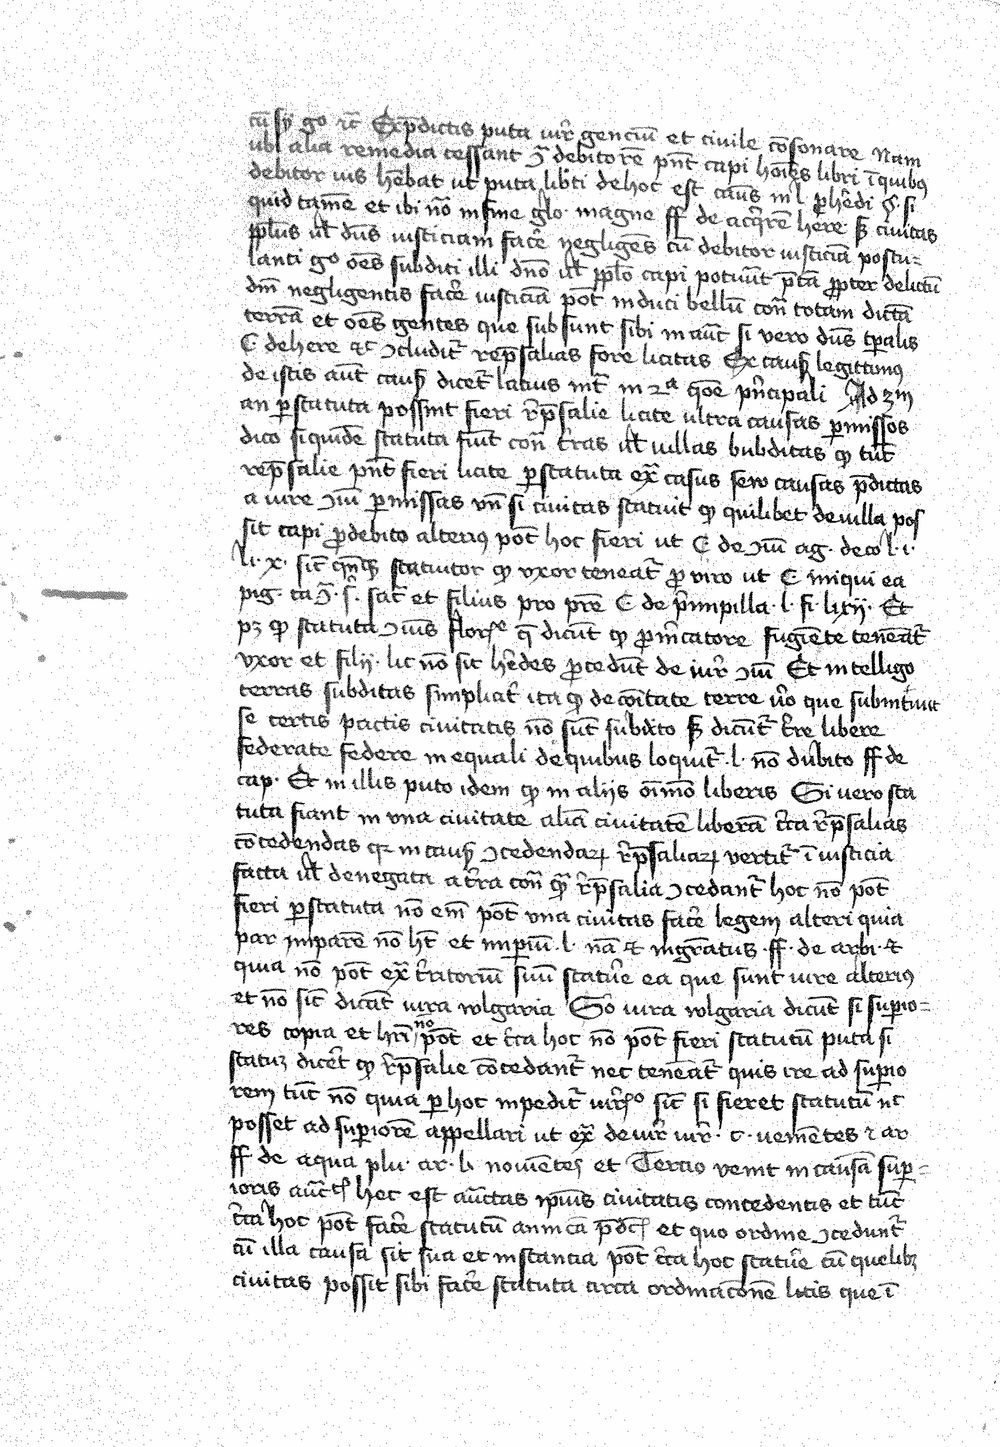 cū sij go ꝛc̄ Ex p̄dictis puta iur̄ genciū et civile cōsonare Nam
ubi alia remedia cessant ꝯ̄ debitorē pn̄t capi hoīes libri ī quibus
debitor ius hēbat ut puta lib̄ti de hoc est casus in l p̄hēdi C. si
quid tamē et ibi nō in fine glo. magne ff de acq̄rēn here sꝫ civitas
pp̄lus ul̄ dn̄s iusticiam facē negligēs cū debitor iusticiā postu-
lanti go oēs subditi illi dn̄o ul̄ pp̄lo capi potuūt p̄tā ꝓpter delictū
dn̄i negligentis facē iusticiā pōt induci bellū con̄ totam dictā
terrā et oēs gentes que subsunt sibi in aūt si vero dn̄s tp̄alis
C de here ⁊c ꝯcludit̄ rep̄salias fore licitas Ex causꝭ legittimis
de istis aūt causꝭ dicet̄ latius int̄ in 2ª q̄ōe pn̄cipali Ad 3m
an ꝑ statuta possint fieri r̄p̄salie licite ultra causas ꝑmissos
dico siquidē statuta fiūt con̄ t̄ras ul̄ villas bubditas ꝙ tūc
rep̄salie pn̄t fieri licite ꝑ statuta ex̄ casus seu causas p̄dictas
a iure ꝯiū ꝑmissas vn̄ si civitas statuit ꝙ quilibet de villa pos
sit capi ꝓ debito alterius pōt hoc fieri ut C de ꝯiū ag. deco l. i.
li. x. sic̄ statuitor ꝙ vxor teneat̄ ꝓ viro ut C iniqui ea
pig. ca ꝯ̄. s̄. fac̄ et filius pro pr̄e C de p̄mipilla. l. fi. li xij. Et
pꝫ ꝙ statuta ꝯiūs florꝫ q̄ dicūt ꝙ ꝓ m̄catore fugiēte teneāt̄
vxor et filij. lic nō sit hērdes ꝓcedūt de iur̄ ꝯiū Et intelligo
terras subditas simplicit̄ ita ꝙ de cōitate terre v̄o que submit̄tūt
se certis pactis civitatis nō sūt subdito sꝫ dicūt̄ t̄re libere
federate federe in equali de quibus loquit̄. l. nō dubito ff de
cap. Et in illis puto idem ꝙ in aliis oīmō liberis Si vero sta
tuta fiant in vna civitate aliā civitatē liberā c̄rca r̄p̄salias
cōcedendas qꝛ in causꝭ ꝯcedendaꝝ r̄p̄saliaꝝ vertit̄ ī iusticia
facta ul̄ denegata a t̄ra con̄ quā r̄p̄salia ꝯcedant̄ hoc nō pōt
fieri ꝑ statuta nō em̄ pōt vna civitas facē legem alteri quia
par in parē nō ht̄ et impiū. l. nā ⁊ in gratus. ff. de arbi. ⁊
quia nō pōt ex̄ t̄ritoriū suū statue ea que sunt iure alterius
et nō sic̄ dicāt iura vulgaria Sō iura vulgaria dicūt si supio-
res copia et hr̄i nō pōt et c̄rca hoc nō pōt fieri statutū puta si
statuꝫ dicēt ꝙ r̄p̄salie cōcedant̄ nec teneāt̄ quis ire ad supio
rem tūc nō quia ꝑ hoc inpedit̄ sic̄ si fieret statutū nc̄
posset ad supiorē appellari ut ex̄ de iur̄ iur̄. c. veniētes ⁊ ar
ff de aqua plu. ar. l. et Tercio venit in causā supi-
ioris auctꝭ hec est auctas ipius civitatis concedentis et tūc
c̄rca hoc pōt facē statutū p̄dcꝭ et quo ordine ꝯcedunt̄
cū illa causa sit sua et instancia pōt c̄rca hoc statue cū quelibꝫ
civitas possit sibi facē statuta circa ordinacōnē litis que ī